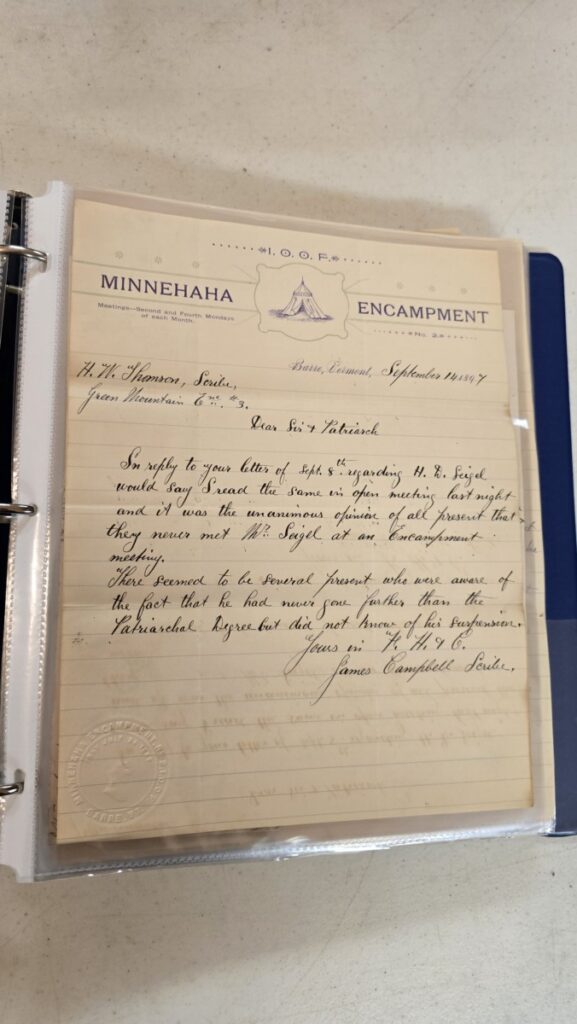 I. O. O. F.
MINNEHAHA ENCAMPMENT
Meetings—Second and Fourth Mondays
of each Month.
No. 2.
Barre, Vermont, September 14 1897
H. W. Thomson, Scribe,
Green Mountain Enc. #3.
Dear Sir & Patriarch
In reply to your letter of Sept. 8th regarding H. D. Seigel
would say I read the same in open meeting last night
and it was the unanimous opinion of all present that
they never met Mr. Seigel at an Encampment
meeting.
There seemed to be several present who were aware of
the fact that he had never gone further than the
Patriarchal Degree but did not know of his suspension.
Yours in F. H. & C.
James Campbell Scribe.
MINNEHAHA ENCAMPMENT
BARRE